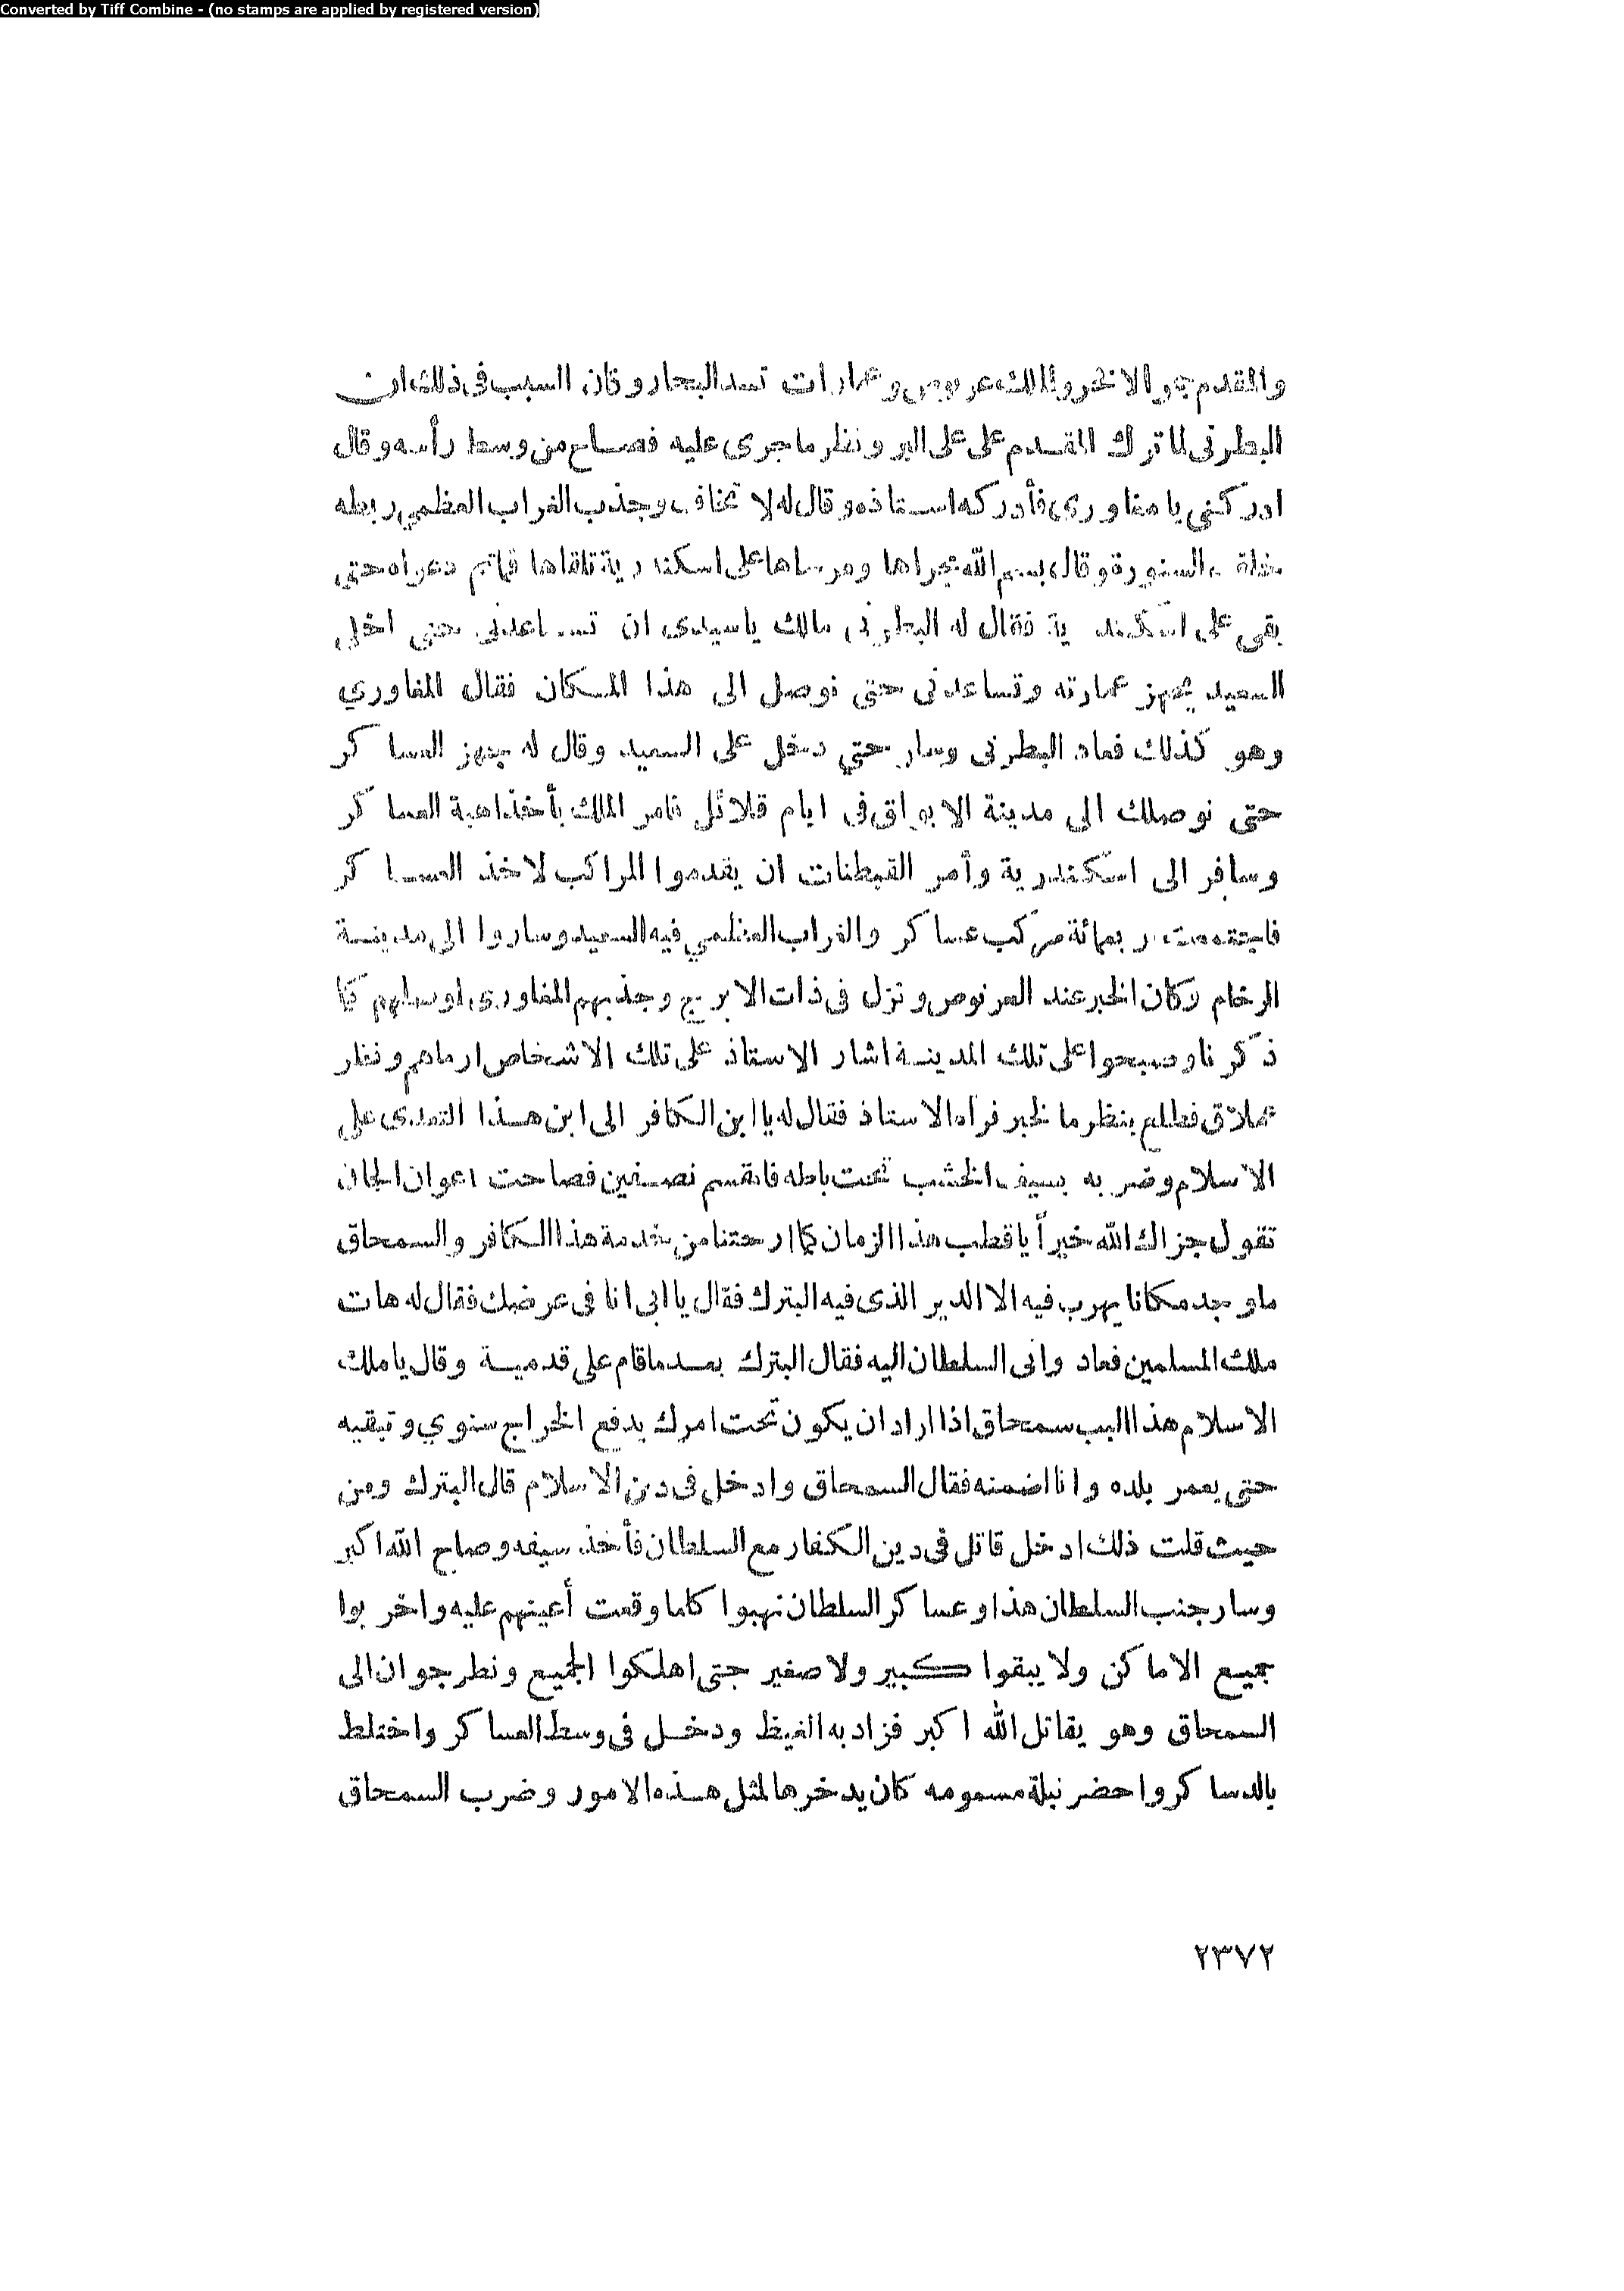 Converted by Tiff Combine - (no stamps are applied by registered version)
والمقدم والملك عرنوص وعمارات تسد البحار وكان السبب فى ذلك ان
البطرنى لما ترك المقدم على على البر ونظر ماجرى عليه فصاح من وسط رأسه وقال
ادركنى يا مغاورى فأدركه استاذه وقال له لا تخاف وجذب الغراب العظمي ربطه
السنورة وقال بسم الله مجراها ومرساها على اسكندرية تلقاها فماتم دعواه حتى
بقى على اسكندرية فقال له البطرنى مالك ياسيدى ان تساعدنى حتى اخلى
السعيد يجهز عمارته وتساعدنى حتى نوصل الى هذا المكان فقال المغاوري
وهو كذلك فعاد البطرنى وسار حتي دخل على السعيد وقال له جهز العساكر
حتى نوصلك الى مدينة الابواق فى ايام قلائل فامر الملك بأخذ اهبة العساكر
وسافر الى اسكندرية وأمر القبطنات ان يقدموا المراكب لاخذ العساكر
فاجتمعت ربعمائة مركب عساكر والغراب العظمي فيه السعيد وساروا الى مدينة
الرخام وكان الخبر عند العرنوص ونزل فى ذات الابريج وجذبهم المغاورى اوصلهم كما
ذكرنا وصبحوا على تلك المدينة اشار الاستاذ على تلك الاشخاص ارماهم ونظر
عملاق فطلع ينظر ما لخبر فرآه الاستاذ فقال له يا ابن الكافر الى اين هذا التعدى على
الاسلام وضربه بسيف الخشب تحت باطه فانقسم نصفين فصاحت اعوان الجان
تقول جزاك الله خيراً يا قطب هذا الزمان كما ارحتنا من خدمة هذا الكافر والسمحاق
ماوجد مكانا يهرب فيه الا الدير الذى فيه البترك فقال يا ابى انا فى عرضك فقال له هات
ملك المسلمين فعاد واتى السلطان اليه فقال البترك بعد ماقام على قدمية وقال يا ملك
الاسلام هذا البب سمحاق اذا اراد ان يكون تحت امرك يدفع الخراج سنوي وتبقيه
حتى يعمر بلده وانا اضمنه فقال السمحاق وادخل فى دين الاسلام قال البترك ومن
حيث قلت ذلك ادخل قاتل فى دين الكفار مع السلطان فأخذ سيفه وصاح الله اكبر
وسار جنب السلطان هذا وعساكر السلطان نهبوا كلما وقعت أعينهم عليه واخربوا
جميع الاماكن ولا يبقوا كبير ولا صغير حتى اهلكوا الجميع ونطر جوان الى
السمحاق وهو يقاتل الله اكبر فزاد به الغيظ ودخل فى وسط العساكر واختلط
بالعساكر واحضر نبلة مسمومه كان يدخرها لمثل هذه الامور وضرب السمحاق
٢٣٧٢